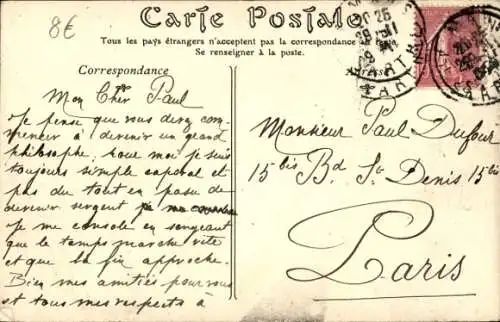 8€
Carte Postale
Tous les pays étrangers n'acceptent pas la correspondance
Se renseigner à la poste.
Correspondance
Mon Cher Paul
Je pense que vous devez com-
mencer à devenir un grand
philosophe, pour moi je suis
toujours simple caporal et
pas du tout en passe de
devenir sergent
je me console en songeant
que le temps marche vite
et que la fin approche.
Bien mes amitiés pour vous
et tous mes respects à
Monsieur Paul Dufour
15 bis Bd. St Denis 15 bis
Paris